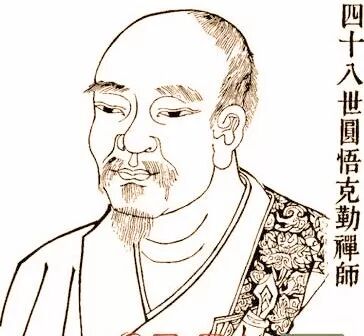 四十八世圓悟克勤禪師